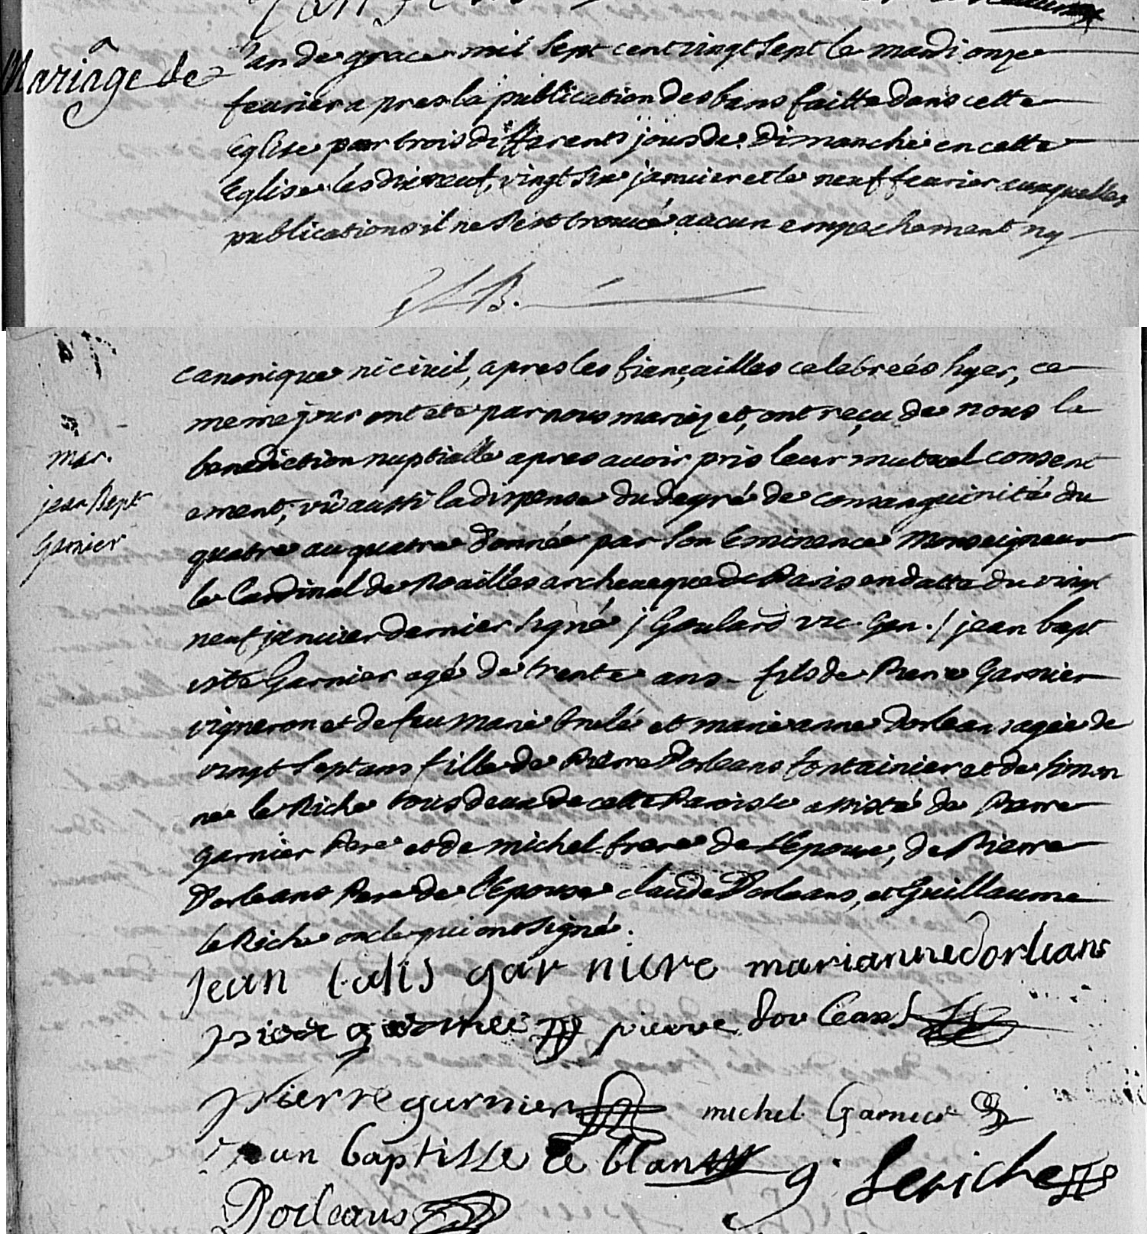 Mariage de
L'an de grace mil sept cent vingt sept le mardi onze
feurier apres la publication des bans faitte dans cette
Eglise par trois differents jours de Dimanche en cette
Eglise les dixneuf, vingt six januier et le neuf feurier auxquelles
publications il ne s'est trouué aucun empechement ny
canonique ni ciuil, apres les fiençailles celebreés hyer, ce
meme jour ont eté par nous mariez et, ont reçu de nous la
benediction nuptialle apres auoir pris leur mutuel consent
ement, vû aussi la dispense du degré de consanguinité du
quatre au quatre donnée par son Eminence Monseigneur
le Cardinal de Noailles archeueque de Paris en datte du vingt
neuf januier dernier signé / Goulard vic. Gen. / jean bapt
mar.
jean Bapt
Garnier
iste Garnier agé de trente ans fils de Pierre Garnier
vigneron et de feu Marie brulé et marie anne Dorleans agée de
vingt sept ans fille de Pierre Dorleans fontainier et de Simon
ne le Riche tous deux de cette Paroisse assisté de Pierre
garnier Pere et de michel frere de l'Epoux, de Pierre
Dorleans Pere de l'Epouse claude Dorleans, et Guillaume
le Riche oncle qui ont signé.
jean batis garniere mariannedorleans
pierre dorleans
pierre garnier michel Garnier
jean baptisse le blan g. leriche
Dorleans